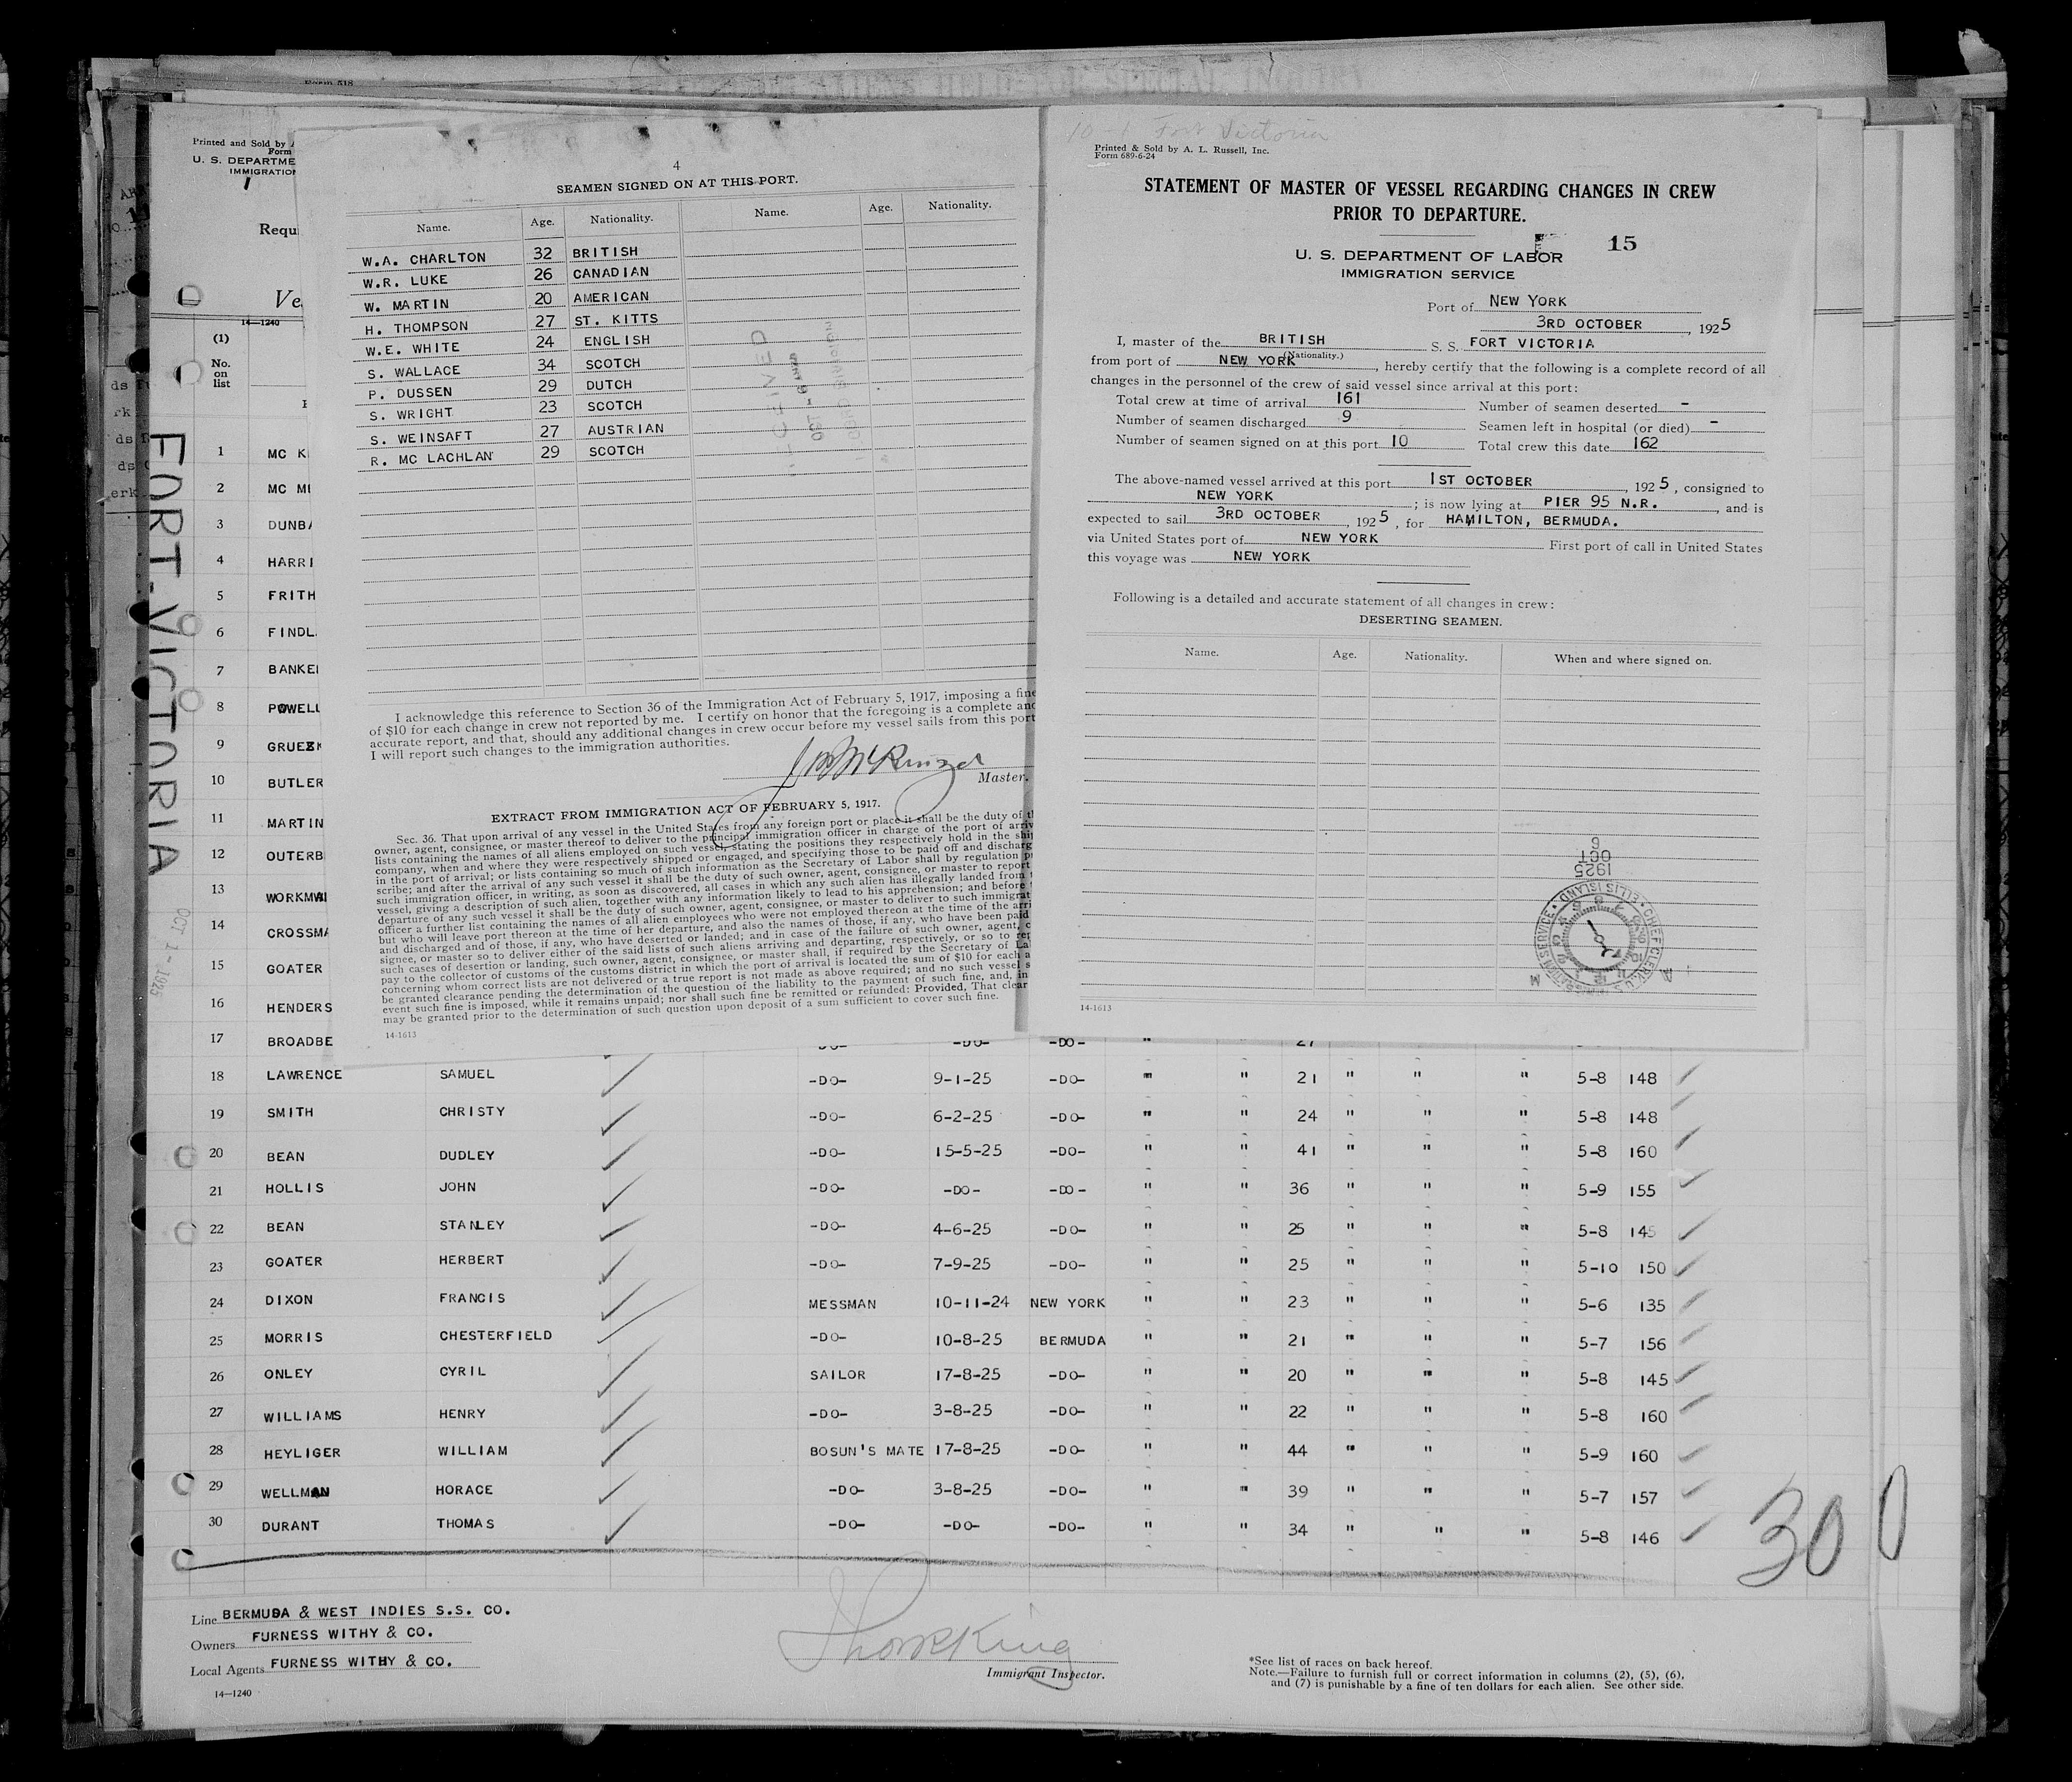 Form 518
Printed and Sold by A
Form
U. S. DEPARTME
IMMIGRATION
Requ
Ve
14—1240
(1)
No.
on
list
FORT-VICTORIA
OCT 1 - 1925
1 MC K
2 MC MI
3 DUNBA
4 HARRI
5 FRITH
6 FINDL
7 BANKE
8 POWELL
9 GRUEZK
10 BUTLER
11 MARTIN
12 OUTERB
13 WORKMAN
14 CROSSMA
15 GOATER
16 HENDERS
17 BROADBE -DO- -DO- -DO- " 27
18 LAWRENCE SAMUEL -DO- 9-1-25 -DO- " " 21 " " " 5-8 148
19 SMITH CHRISTY -DO- 6-2-25 -DO- " " 24 " " " 5-8 148
20 BEAN DUDLEY -DO- 15-5-25 -DO- " " 41 " " " 5-8 160
21 HOLLIS JOHN -DO- -DO- -DO- " " 36 " " " 5-9 155
22 BEAN STANLEY -DO- 4-6-25 -DO- " " 25 " " " 5-8 145
23 GOATER HERBERT -DO- 7-9-25 -DO- " " 25 " " " 5-10 150
24 DIXON FRANCIS MESSMAN 10-11-24 NEW YORK " " 23 " " " 5-6 135
25 MORRIS CHESTERFIELD -DO- 10-8-25 BERMUDA " " 21 " " " 5-7 156
26 ONLEY CYRIL SAILOR 17-8-25 -DO- " " 20 " " " 5-8 145
27 WILLIAMS HENRY -DO- 3-8-25 -DO- " " 22 " " " 5-8 160
28 HEYLIGER WILLIAM BOSUN'S MATE 17-8-25 -DO- " " 44 " " " 5-9 160
29 WELLMAN HORACE -DO- 3-8-25 -DO- " " 39 " " " 5-7 157
30 DURANT THOMAS -DO- -DO- -DO- " " 34 " " " 5-8 146
30
0
Line BERMUDA & WEST INDIES S.S. CO.
Owners FURNESS WITHY & CO.
Local Agents FURNESS WITHY & CO.
14—1240
Immigrant Inspector.
*See list of races on back hereof.
Note.—Failure to furnish full or correct information in columns (2), (5), (6),
and (7) is punishable by a fine of ten dollars for each alien. See other side.
4
SEAMEN SIGNED ON AT THIS PORT.
Name. Age. Nationality. Name. Age. Nationality.
W.A. CHARLTON 32 BRITISH
W.R. LUKE 26 CANADIAN
W. MARTIN 20 AMERICAN
H. THOMPSON 27 ST. KITTS
W.E. WHITE 24 ENGLISH
S. WALLACE 34 SCOTCH
P. DUSSEN 29 DUTCH
S. WRIGHT 23 SCOTCH
S. WEINSAFT 27 AUSTRIAN
R. MC LACHLAN 29 SCOTCH
RECEIVED
OCT
I acknowledge this reference to Section 36 of the Immigration Act of February 5, 1917, imposing a fine
of $10 for each change in crew not reported by me. I certify on honor that the foregoing is a complete and
accurate report, and that, should any additional changes in crew occur before my vessel sails from this port
I will report such changes to the immigration authorities.
Master.
EXTRACT FROM IMMIGRATION ACT OF FEBRUARY 5, 1917.
Sec. 36. That upon arrival of any vessel in the United States from any foreign port or place it shall be the duty of t
owner, agent, consignee, or master thereof to deliver to the principal immigration officer in charge of the port of arriv
lists containing the names of all aliens employed on such vessel, stating the positions they respectively hold in the ship
company, when and where they were respectively shipped or engaged, and specifying those to be paid off and discharg
in the port of arrival; or lists containing so much of such information as the Secretary of Labor shall by regulation p
scribe; and after the arrival of any such vessel it shall be the duty of such owner, agent, consignee, or master to report
such immigration officer, in writing, as soon as discovered, all cases in which any such alien has illegally landed from
vessel, giving a description of such alien, together with any information likely to lead to his apprehension; and before
departure of any such vessel it shall be the duty of such owner, agent, consignee, or master to deliver to such immigrat
officer a further list containing the names of all alien employees who were not employed thereon at the time of the arri
but who will leave port thereon at the time of her departure, and also the names of those, if any, who have been paid
and discharged and of those, if any, who have deserted or landed; and in case of the failure of such owner, agent, c
signee, or master so to deliver either of the said lists of such aliens arriving and departing, respectively, or so to rep
such cases of desertion or landing, such owner, agent, consignee, or master shall, if required by the Secretary of La
pay to the collector of customs of the customs district in which the port of arrival is located the sum of $10 for each a
concerning whom correct lists are not delivered or a true report is not made as above required; and no such vessel s
be granted clearance pending the determination of the question of the liability to the payment of such fine, and, in
event such fine is imposed, while it remains unpaid; nor shall such fine be remitted or refunded: Provided, That clear
may be granted prior to the determination of such question upon deposit of a sum sufficient to cover such fine.
14-1613
10-1 Fort Victoria
Printed & Sold by A. L. Russell, Inc.
Form 689-6-24
STATEMENT OF MASTER OF VESSEL REGARDING CHANGES IN CREW
PRIOR TO DEPARTURE.
15
U. S. DEPARTMENT OF LABOR
IMMIGRATION SERVICE
Port of NEW YORK
3RD OCTOBER, 1925
I, master of the BRITISH S. S. FORT VICTORIA
(Nationality.)
from port of NEW YORK, hereby certify that the following is a complete record of all
changes in the personnel of the crew of said vessel since arrival at this port:
Total crew at time of arrival 161 Number of seamen deserted -
Number of seamen discharged 9 Seamen left in hospital (or died) -
Number of seamen signed on at this port 10 Total crew this date 162
The above-named vessel arrived at this port 1ST OCTOBER, 1925, consigned to
NEW YORK; is now lying at PIER 95 N.R., and is
expected to sail 3RD OCTOBER, 1925, for HAMILTON, BERMUDA.
via United States port of NEW YORK First port of call in United States
this voyage was NEW YORK
Following is a detailed and accurate statement of all changes in crew:
DESERTING SEAMEN.
Name. Age. Nationality. When and where signed on.
1925
OCT
6
CHIEF CLERK U.S. IMMIGRATION SERVICE • ELLIS ISLAND •
A M
14-1613